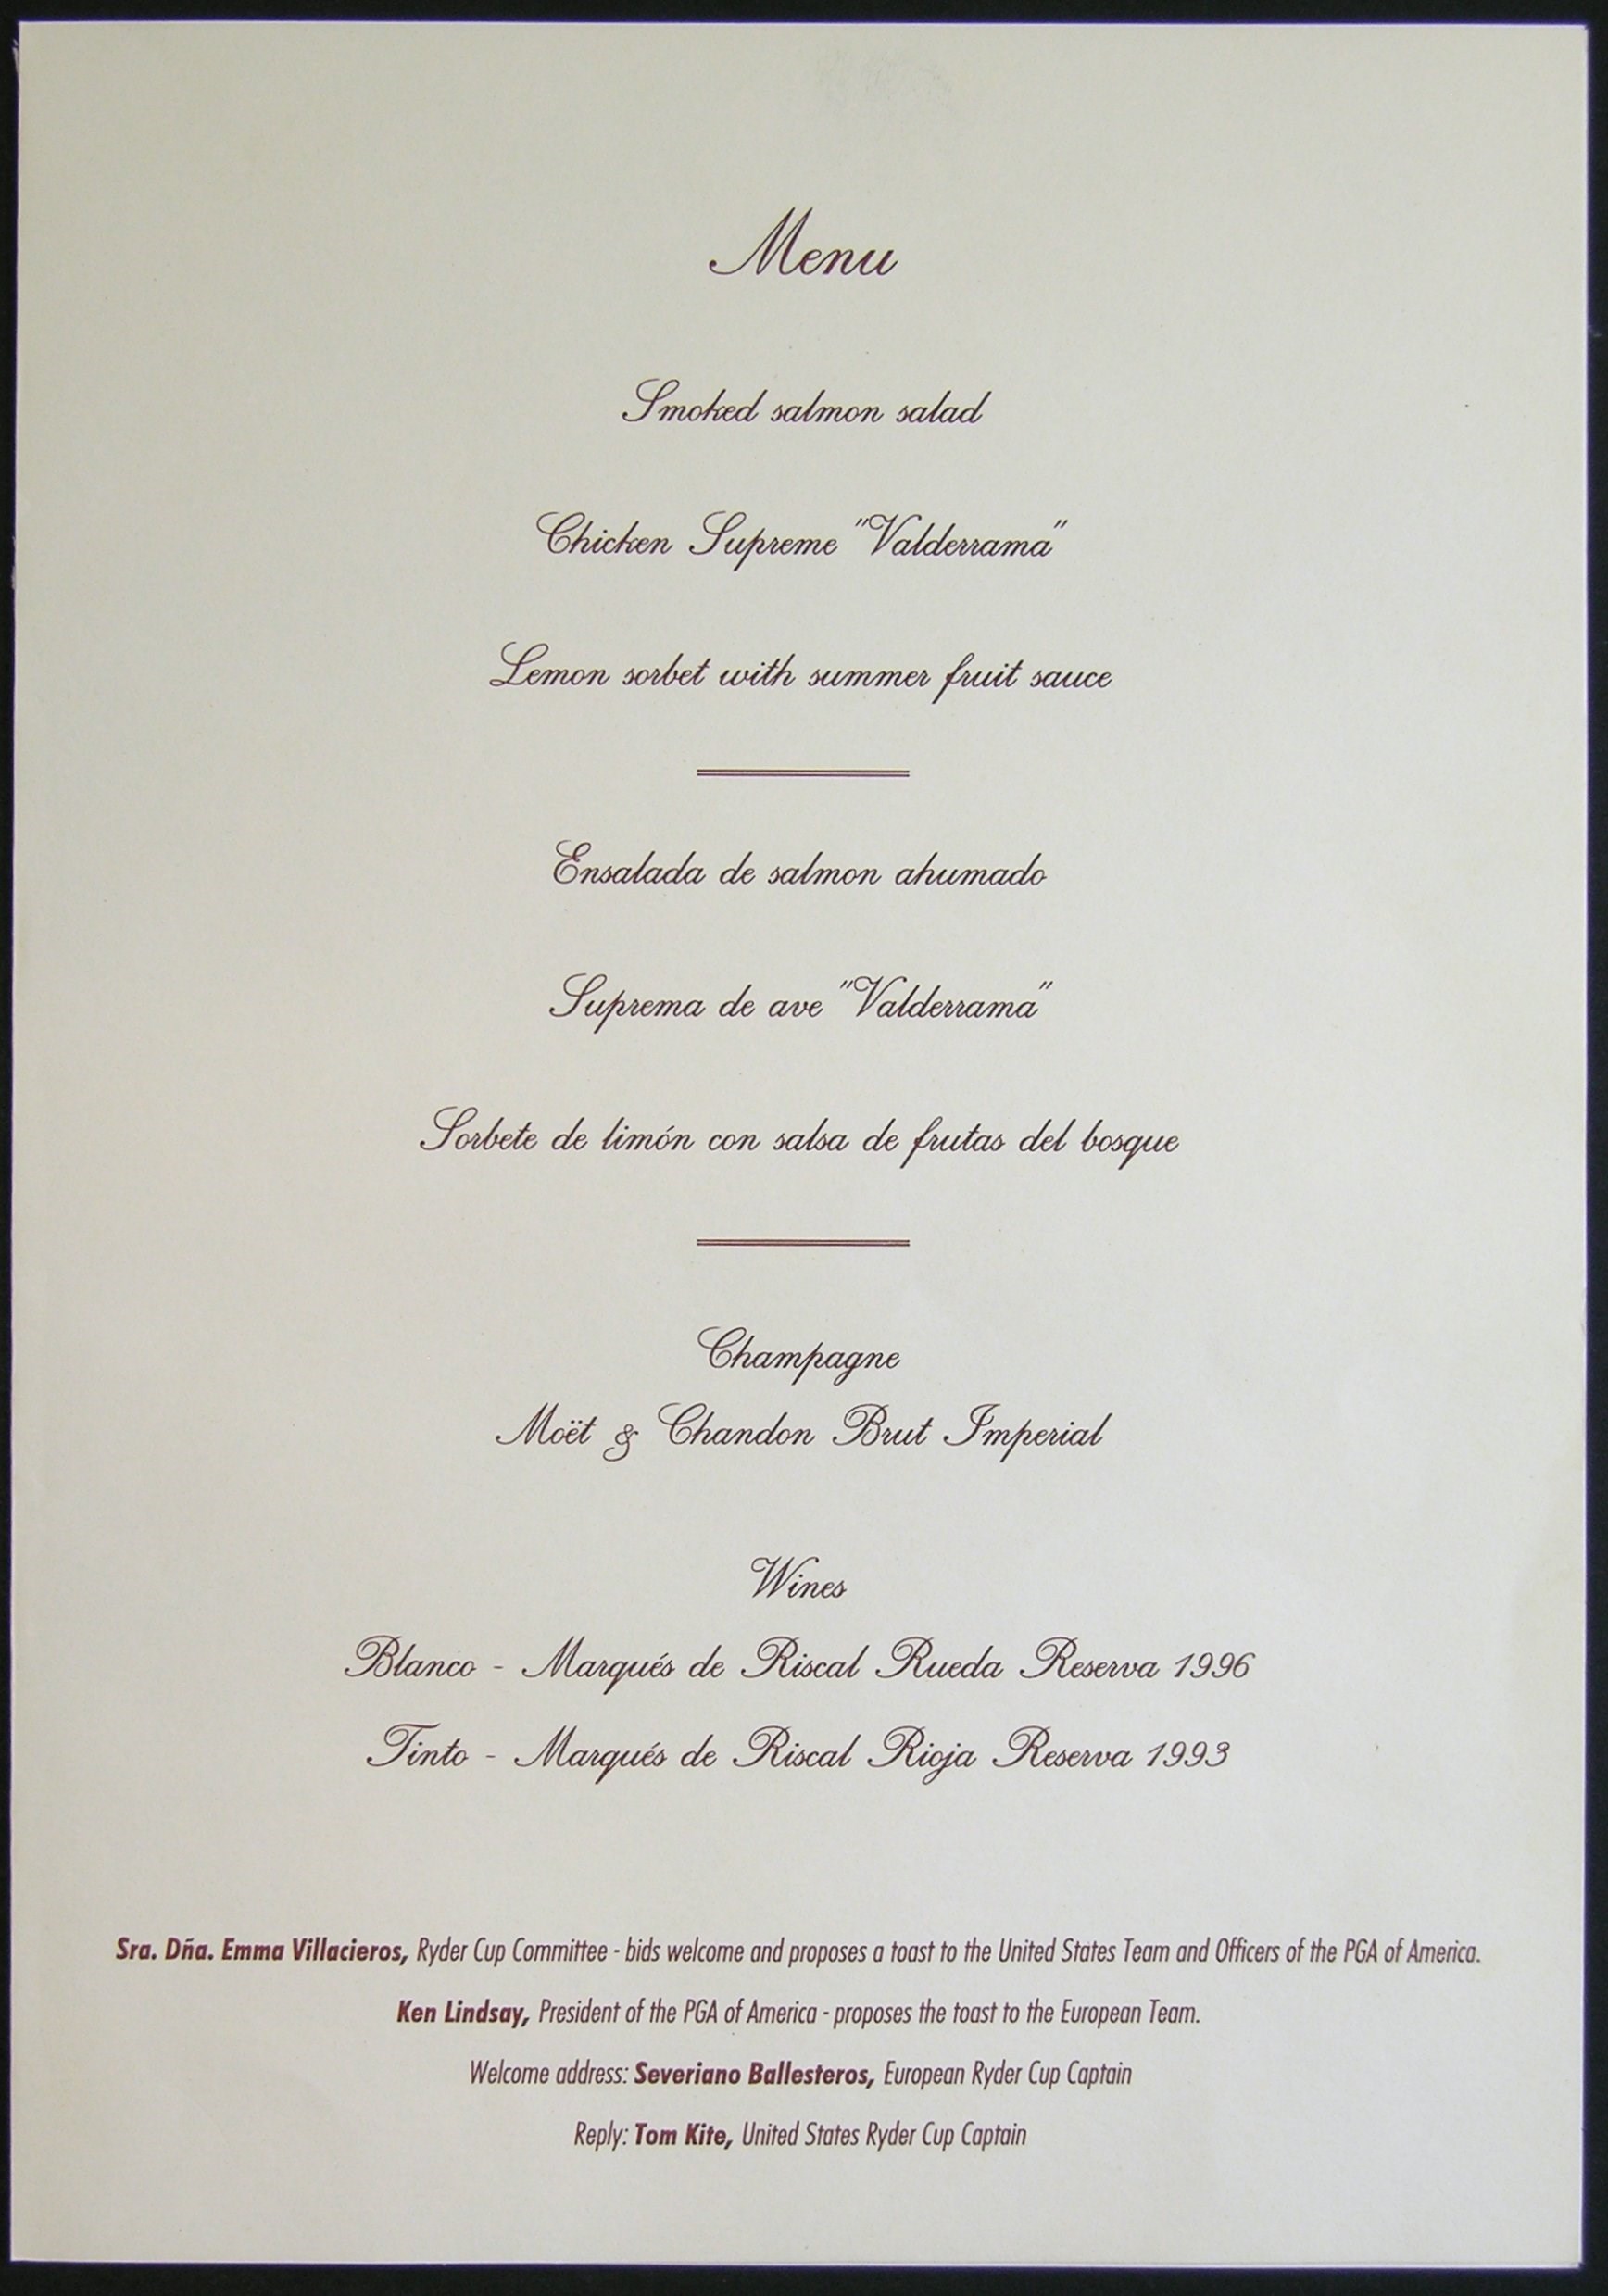 Menu
Smoked salmon salad
Chicken Supreme "Valderrama"
Lemon sorbet with summer fruit sauce
Ensalada de salmon ahumado
Suprema de ave "Valderrama"
Sorbete de limón con salsa de frutas del bosque
Champagne
Moët & Chandon Brut Imperial
Wines
Blanco - Marqués de Riscal Rueda Reserva 1996
Tinto - Marqués de Riscal Rioja Reserva 1993
Sra. Dña. Emma Villacieros, Ryder Cup Committee - bids welcome and proposes a toast to the United States Team and Officers of the PGA of America.
Ken Lindsay, President of the PGA of America - proposes the toast to the European Team.
Welcome address: Severiano Ballesteros, European Ryder Cup Captain
Reply: Tom Kite, United States Ryder Cup Captain